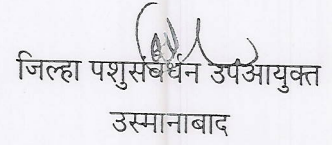 जिल्हा पशुसंवर्धन उपआयुक्त
उस्मानाबाद